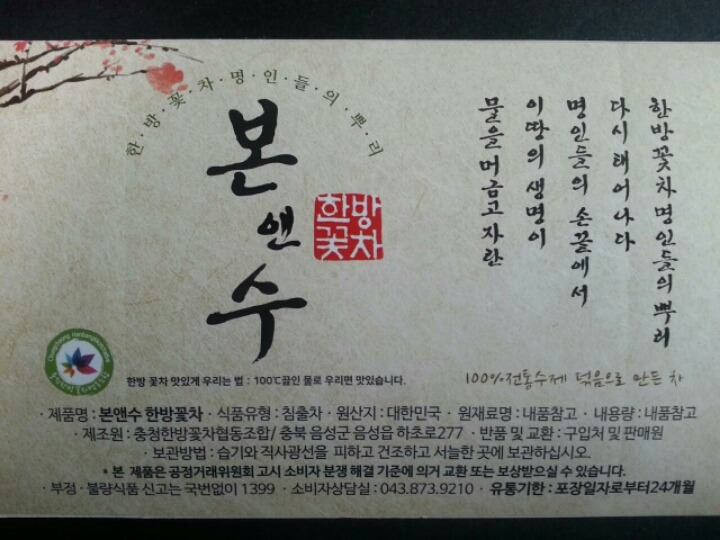 한·방·꽃·차·명·인·들·의·뿌·리
본
앤
수
한방
꽃차
한방꽃차명인들의뿌리
다시 태어나다
명인들의 손끝에서
이땅의생명이
물을머금고자란
한방 꽃차 맛있게 우리는 법 : 100℃끓인 물로 우리면 맛있습니다.
100%전통수제 덖음으로 만든 차
· 제품명 : 본앤수 한방꽃차 · 식품유형 : 침출차 · 원산지 : 대한민국 · 원재료명 : 내품참고 · 내용량 : 내품참고
· 제조원 : 충청한방꽃차협동조합/ 충북 음성군 음성읍 하초로277 · 반품 및 교환 : 구입처 및 판매원
· 보관방법 : 습기와 직사광선을 피하고 건조하고 서늘한 곳에 보관하십시오.
* 본 제품은 공정거래위원회 고시 소비자 분쟁 해결 기준에 의거 교환 또는 보상받으실 수 있습니다.
· 부정 · 불량식품 신고는 국번없이 1399 · 소비자상담실 : 043.873.9210 · 유통기한 : 포장일자로부터24개월